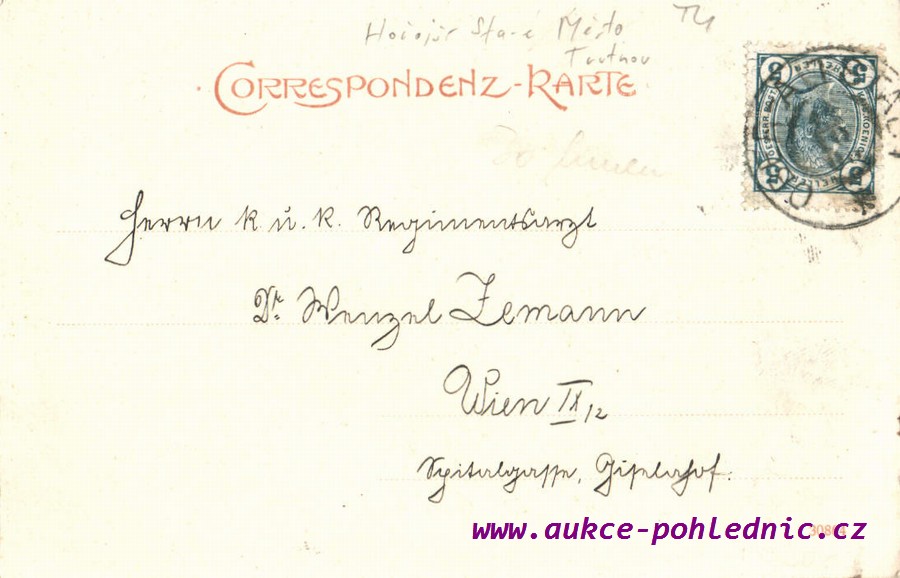 Staré Město
Trutnov
CORRESPONDENZ-KARTE.
5 5
5 5
Herrn k. u. k. Regimentsarzt
Dr. Wenzel Zemann
Wien IX/2
Spitalgasse, Giselahof.
www.aukce-pohlednic.cz